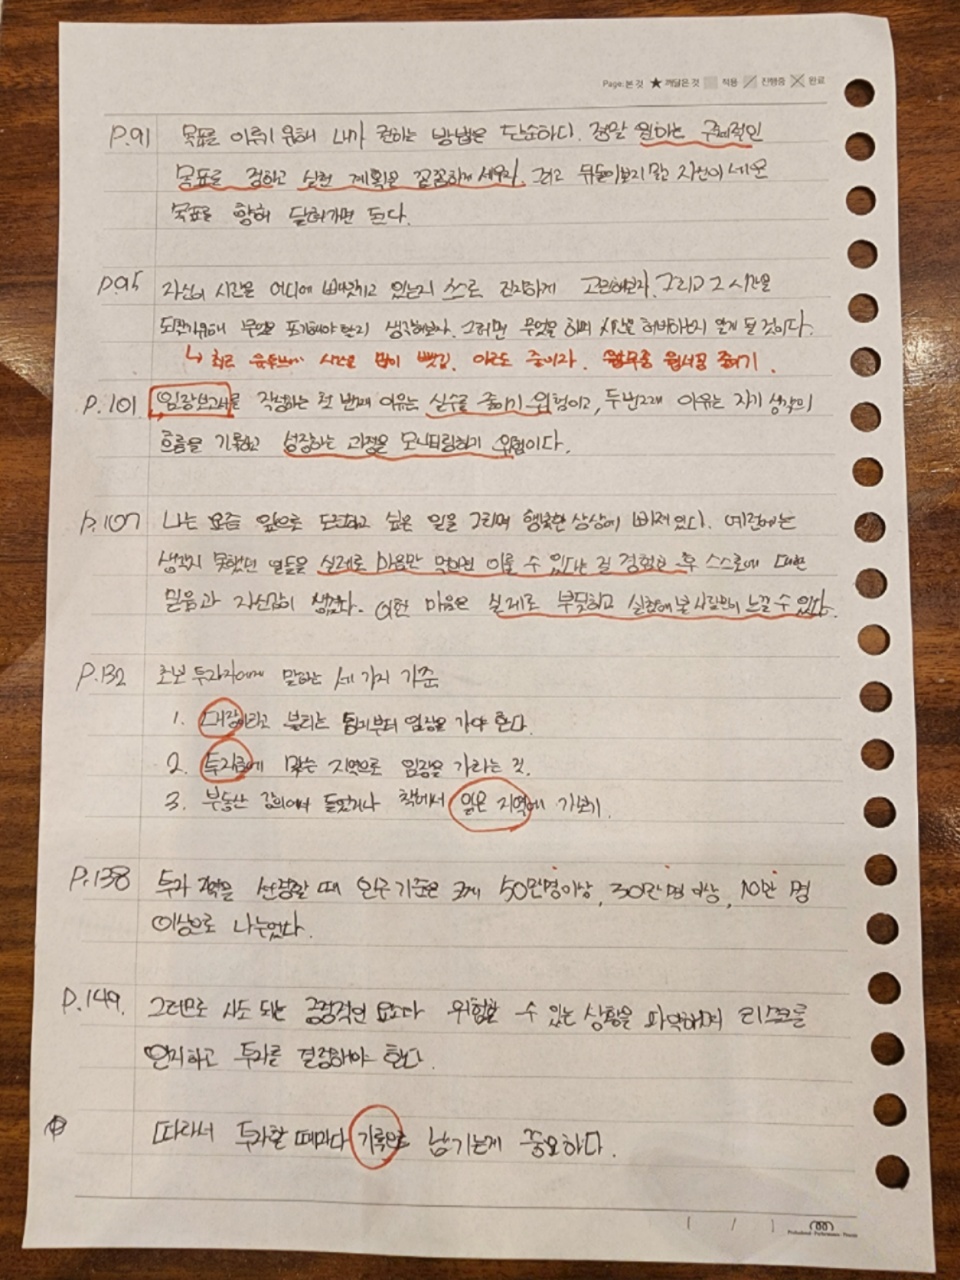 Page:본 것 ★ 깨달은 것 적용 진행중 완료
P.91 목표를 이루기 위해 내가 권하는 방법은 단순하다. 정말 원하는 구체적인
목표를 정하고 실천 계획은 꼼꼼하게 세우자. 그리고 뒤돌아보지 말고 자신이 세운
목표를 향해 달려가면 된다.
P.95 자신의 시간을 어디에 빼앗기고 있는지 스스로 진지하게 고민해보자. 그리고 그 시간을
되찾기위해 무엇을 포기해야 할지 생각해보자. 그러면 무엇을 하며 시간을 허비하는지 알게 될 것이다.
↳ 최근 유튜브에 시간을 많이 뺏김. 이것도 줄이자. 업무중 웹서핑 줄이기.
P.101 임장보고서를 작성하는 첫 번째 이유는 실수를 줄이기 위함이고, 두번째 이유는 자기 생각의
흐름을 기록하고 성장하는 과정을 모니터링하기 위함이다.
P.107 나는 요즘 앞으로 도전하고 싶은 일을 그리며 행복한 상상에 빠져있다. 예전에는
생각지 못했던 일들을 실제로 마음만 먹으면 이룰 수 있다는 걸 경험한 후 스스로에 대한
믿음과 자신감이 생겼다. 이런 마음은 실제로 부딪히고 실천해본 사람만이 느낄 수 있다.
P.132 초보 투자자에게 말하는 세 가지 기준
1. 대장이라고 불리는 단지부터 임장을 가야 한다.
2. 투자금에 맞는 지역으로 임장을 가라는 것.
3. 부동산 강의에서 들었거나 책에서 읽은 지역에 가보기.
P.138 투자 지역을 선정할 때 인구 기준은 크게 50만명이상, 30만 명 이상, 10만 명
이상으로 나누었다.
P.149. 그러므로 시도 되는 긍정적인 요소다 위험할 수 있는 상황을 파악하며 리스크를
인지하고 투자를 결정해야 한다.
따라서 투자할 때마다 기록으로 남기는게 중요하다.